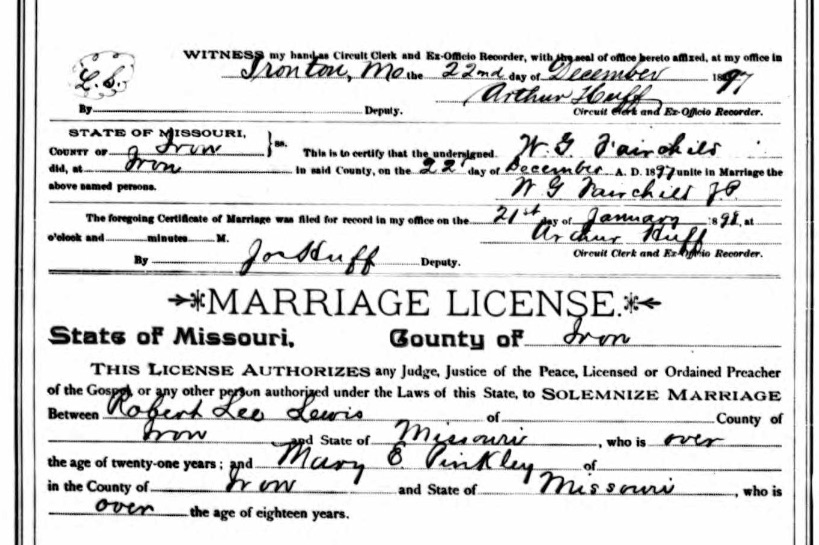 WITNESS my hand as Circuit Clerk and Ex-Officio Recorder, with the seal of office hereto affixed, at my office in
L.S. Ironton, Mo the 22nd day of December 1897
Arthur Huff
By Deputy. Circuit Clerk and Ex-Officio Recorder.
STATE OF MISSOURI,
COUNTY OF Iron } ss. This is to certify that the undersigned W. G. Fairchild
did, at Iron in said County, on the 22 day of December A. D. 1897 unite in Marriage the
above named persons. W G Fairchild J.P.
The foregoing Certificate of Marriage was filed for record in my office on the 21st day of January 1898, at
o'clock and minutes M. Arthur Huff
By Jos Huff Deputy. Circuit Clerk and Ex-Officio Recorder.
MARRIAGE LICENSE.
State of Missouri, County of Iron
THIS LICENSE AUTHORIZES any Judge, Justice of the Peace, Licensed or Ordained Preacher
of the Gospel, or any other person authorized under the Laws of this State, to SOLEMNIZE MARRIAGE
Between Robert Lee Lewis of County of
Iron and State of Missouri, who is over
the age of twenty-one years; and Mary E Pinkley of
in the County of Iron and State of Missouri, who is
over the age of eighteen years.